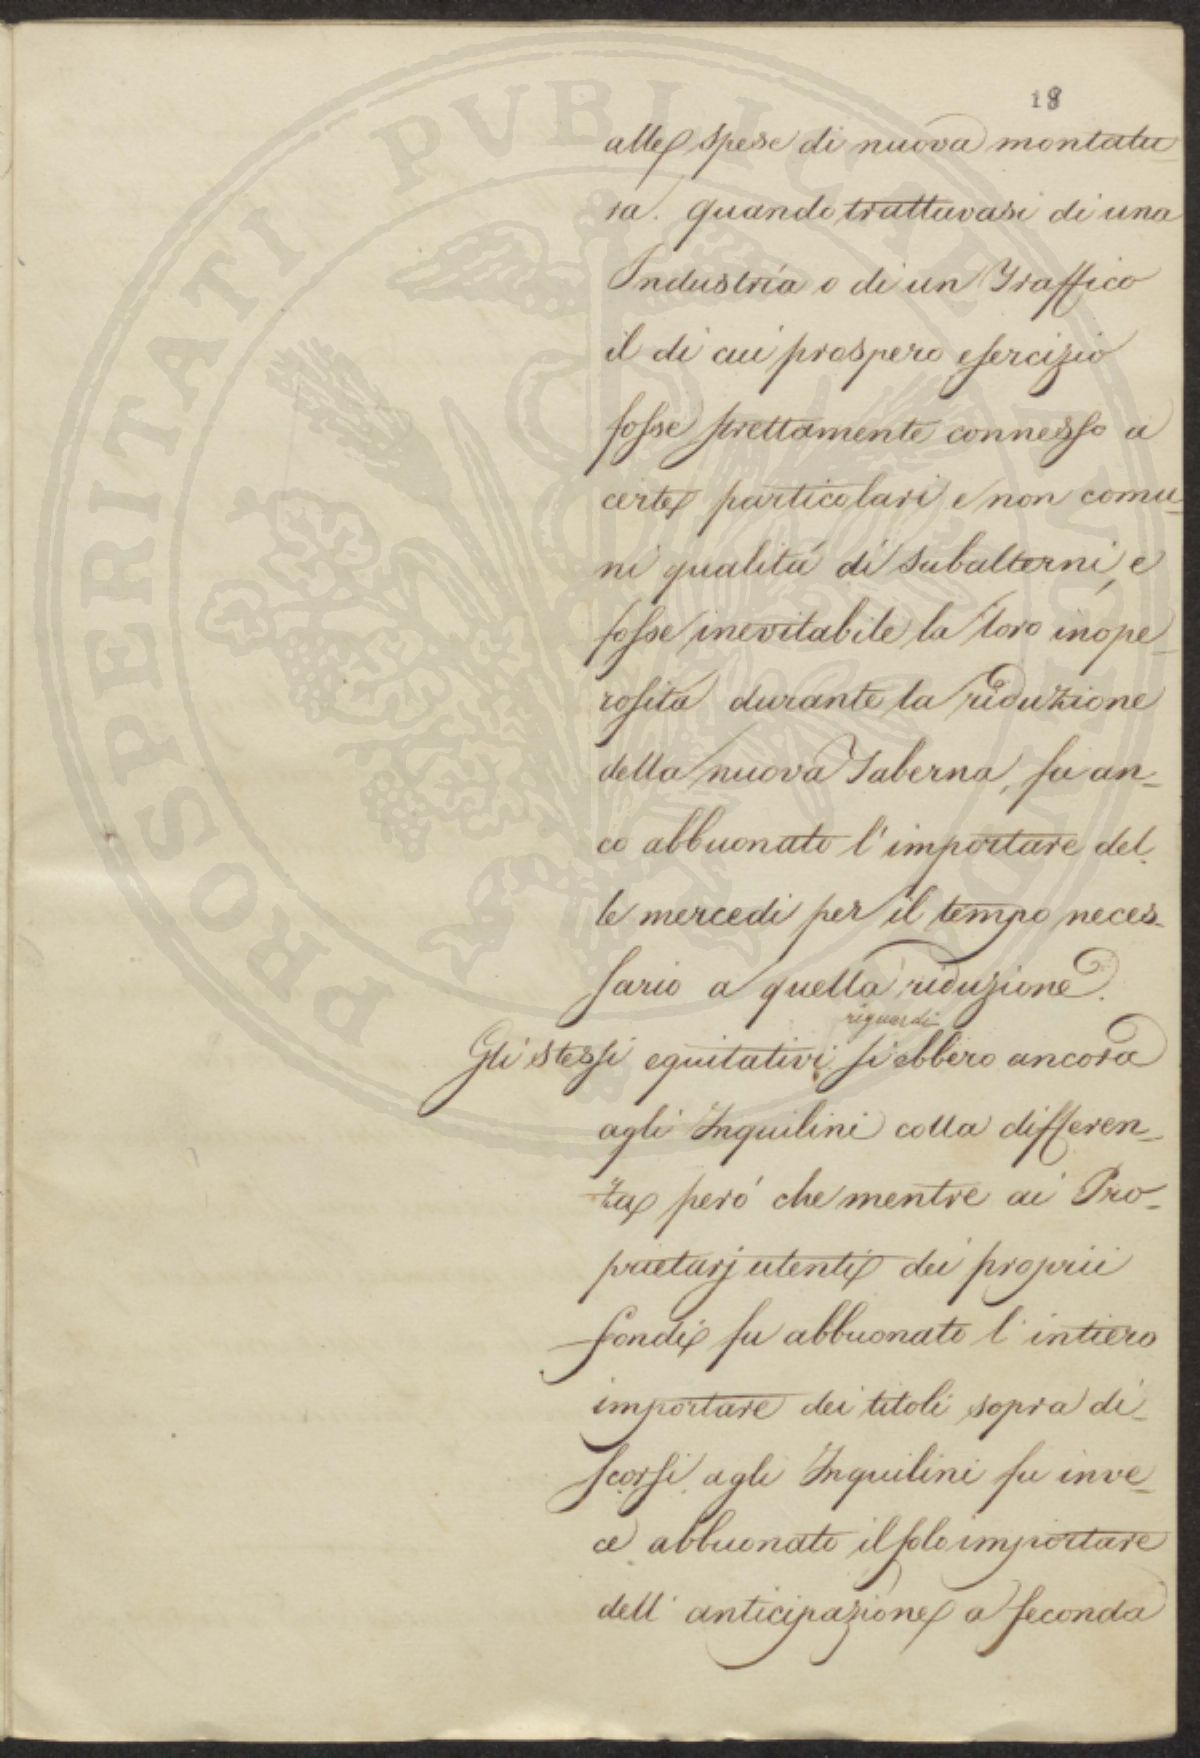 18
alle spese di nuova montatu-
ra. quando trattavasi di una
Industria o di un Traffico
il di cui prospero esercizio
fosse strettamente connesso a
certe particolari e non comu-
ni qualità di subalterni, e
fosse inevitabile la loro inope-
rosità durante la riduzione
della nuova Taberna, fu an-
co abbuonato l'importare del-
le mercedi per il tempo neces-
sario a quella riduzione.
riguardi
Gli stessi equitativi si ebbero ancora
agli Inquilini colla differen-
za peró che mentre ai Pro-
prietarj utenti dei proprii
fondi fu abbuonato l'intiero
importare dei titoli sopra di-
scorsi, agli Inquilini fu inve-
ce abbuonato il solo importare
dell'anticipazione a seconda
PROSPERITATI PVBLICAE